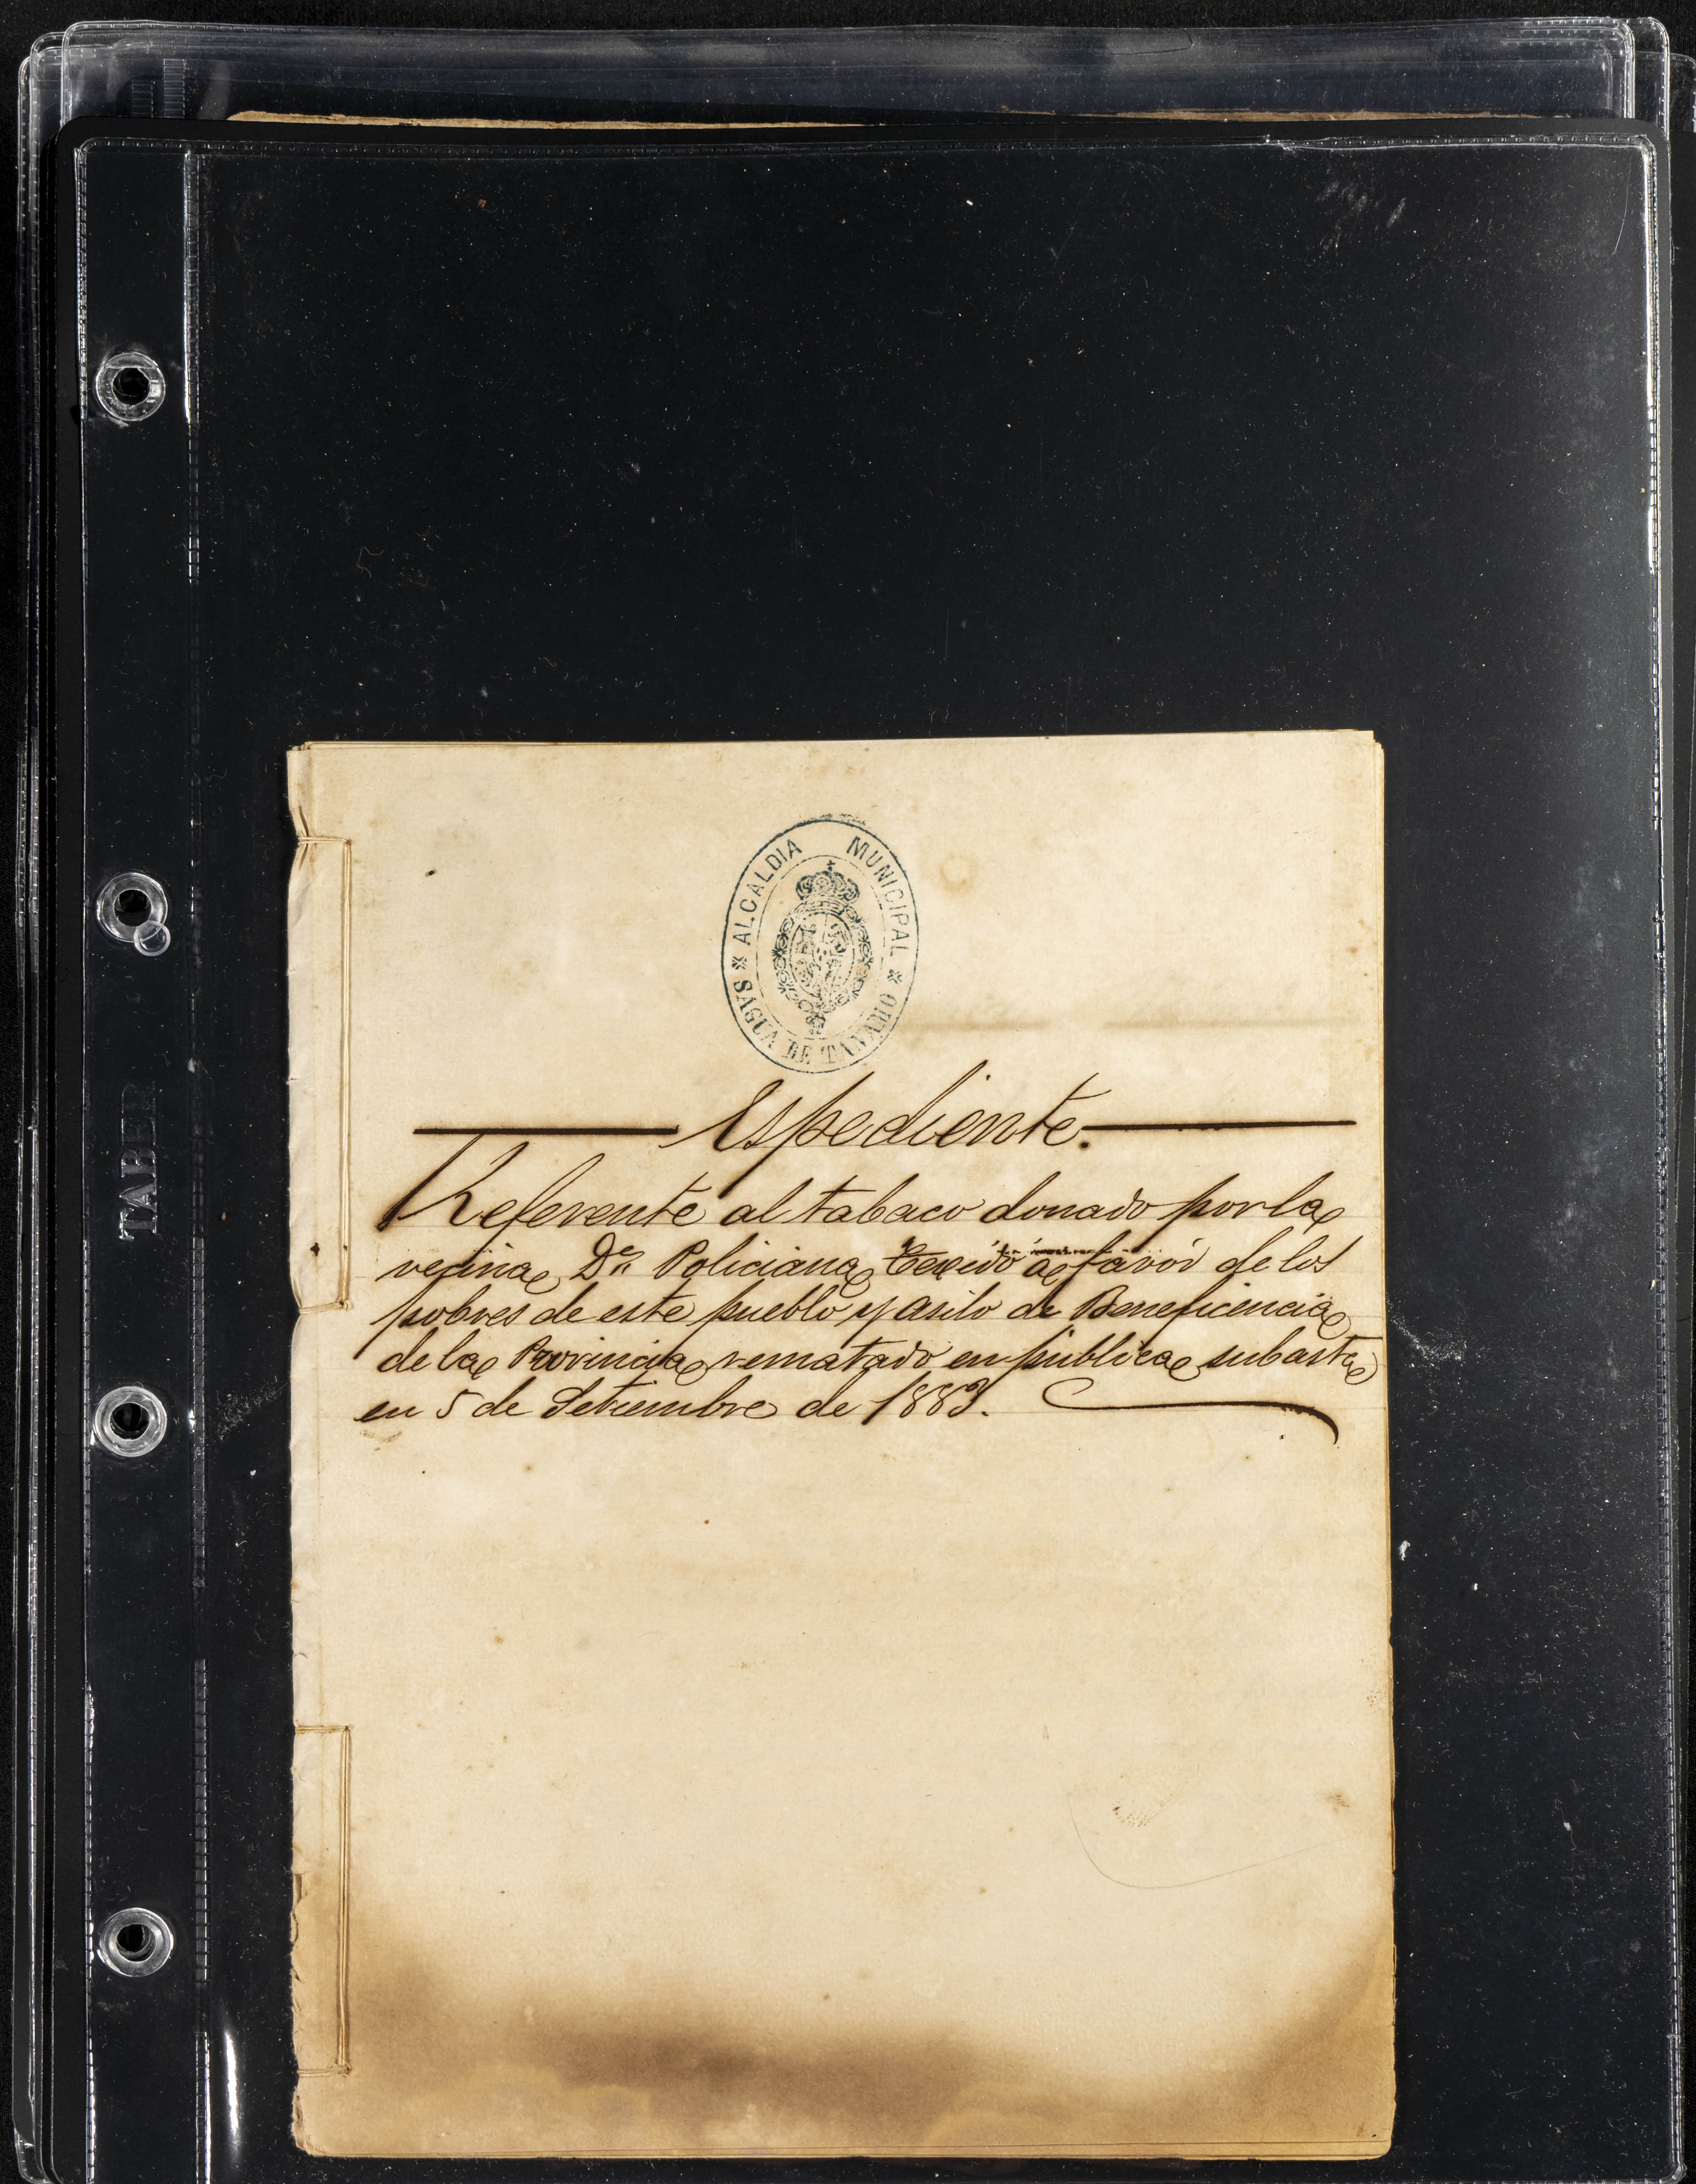 ALCALDIA MUNICIPAL
SAGUA DE TANAMO
Espediente.
Referente al tabaco donado por la
vecina Dª Policiana á favór de los
pobres de este pueblo y asilo de Beneficencia
de la Provincia rematado en pública subasta
en 5 de Setiembre de 1883.
TABER